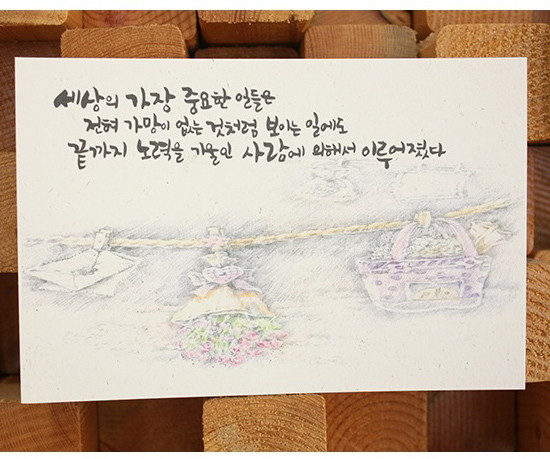 세상의 가장 중요한 일들은
전혀 가망이 없는 것처럼 보이는 일에도
끝까지 노력을 기울인 사람에 의해서 이루어졌다